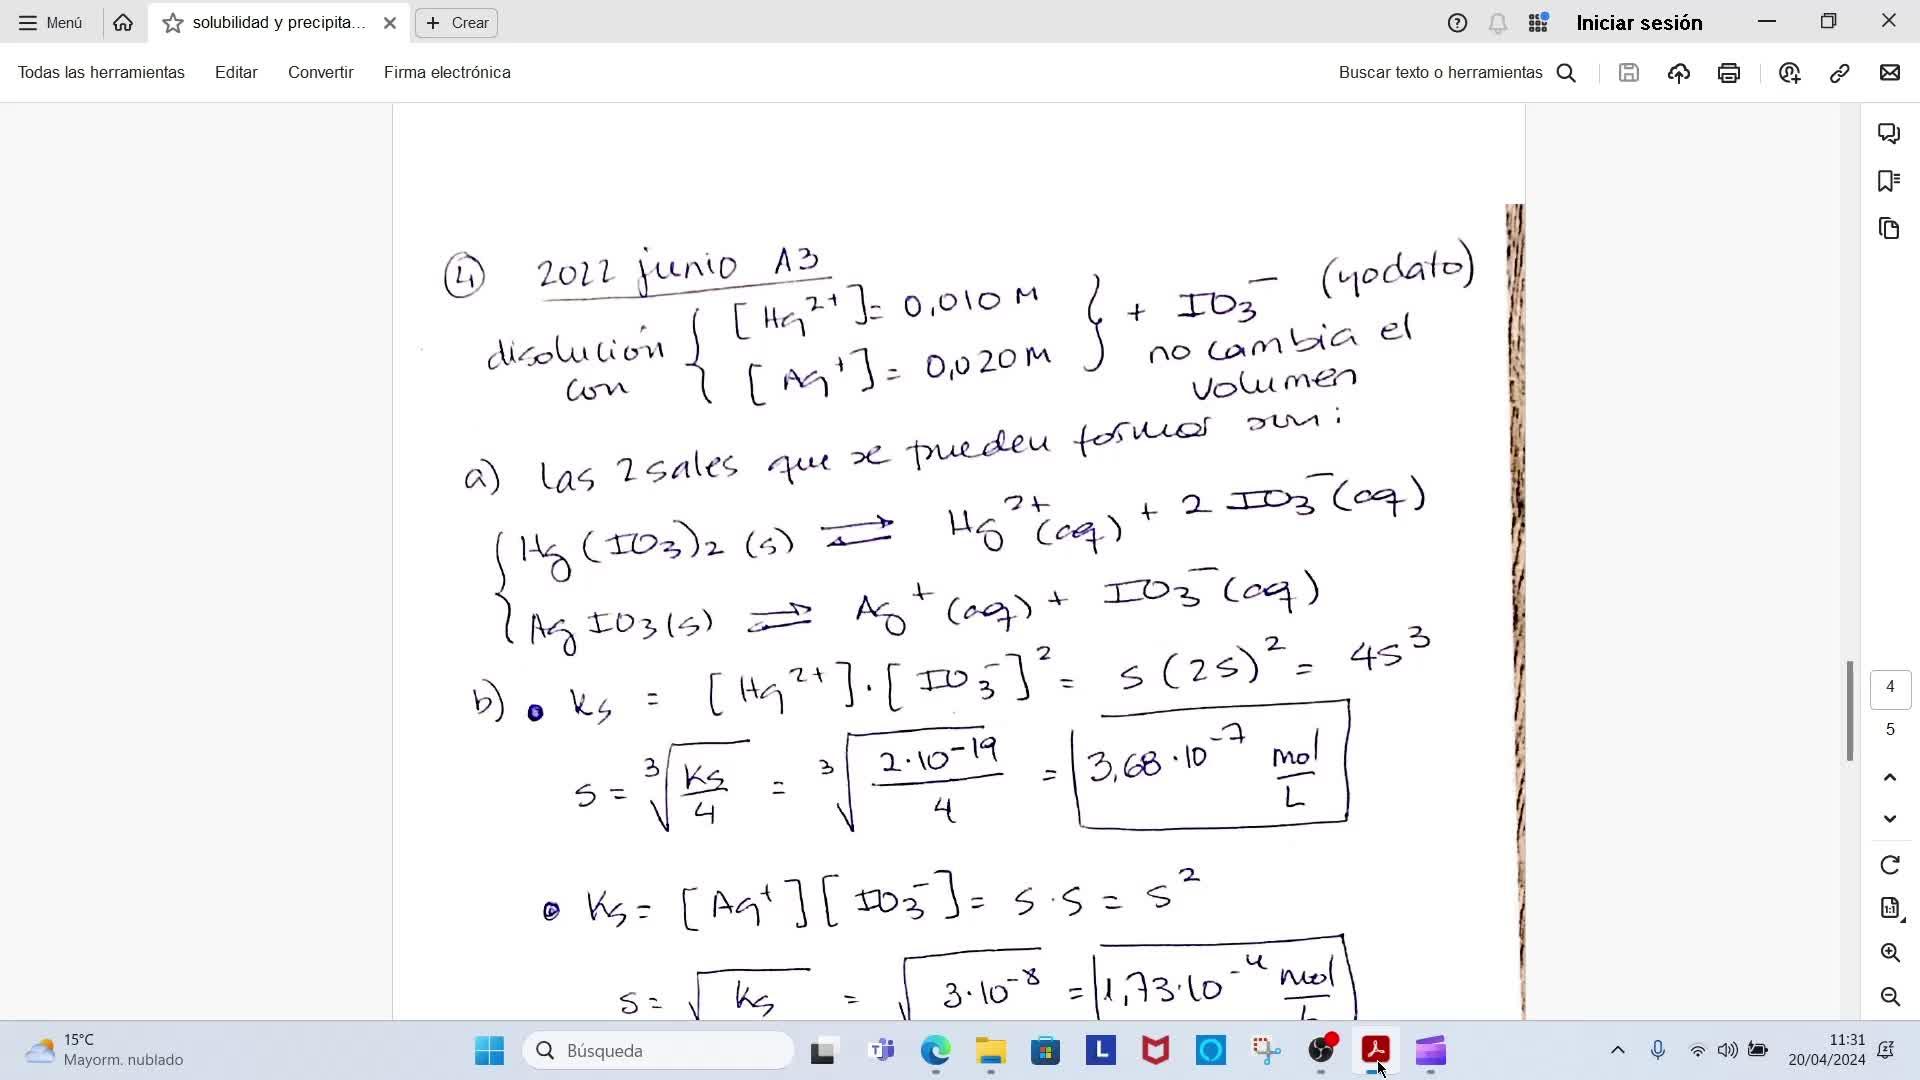 Menú
solubilidad y precipita...
Crear
Iniciar sesión
Todas las herramientas
Editar
Convertir
Firma electrónica
Buscar texto o herramientas
④ 2022 junio A3
disolución con { [Hg²⁺] = 0,010 M
[Ag⁺] = 0,020 M } + IO₃⁻ (yodato)
no cambia el
volumen
a) las 2 sales que se pueden formar son:
{ Hg(IO₃)₂ (s) ⇌ Hg²⁺(aq) + 2 IO₃⁻(aq)
Ag IO₃(s) ⇌ Ag⁺(aq) + IO₃⁻(aq)
b) • Ks = [Hg²⁺]·[IO₃⁻]² = s(2s)² = 4s³
s = ³√(Ks/4) = ³√(2·10⁻¹⁹/4) = 3,68·10⁻⁷ mol/L
• Ks = [Ag⁺][IO₃⁻] = s·s = s²
s = √Ks = √3·10⁻⁸ = 1,73·10⁻⁴ mol/L
4
5
1:1
15°C
Mayorm. nublado
Búsqueda
L
11:31
20/04/2024